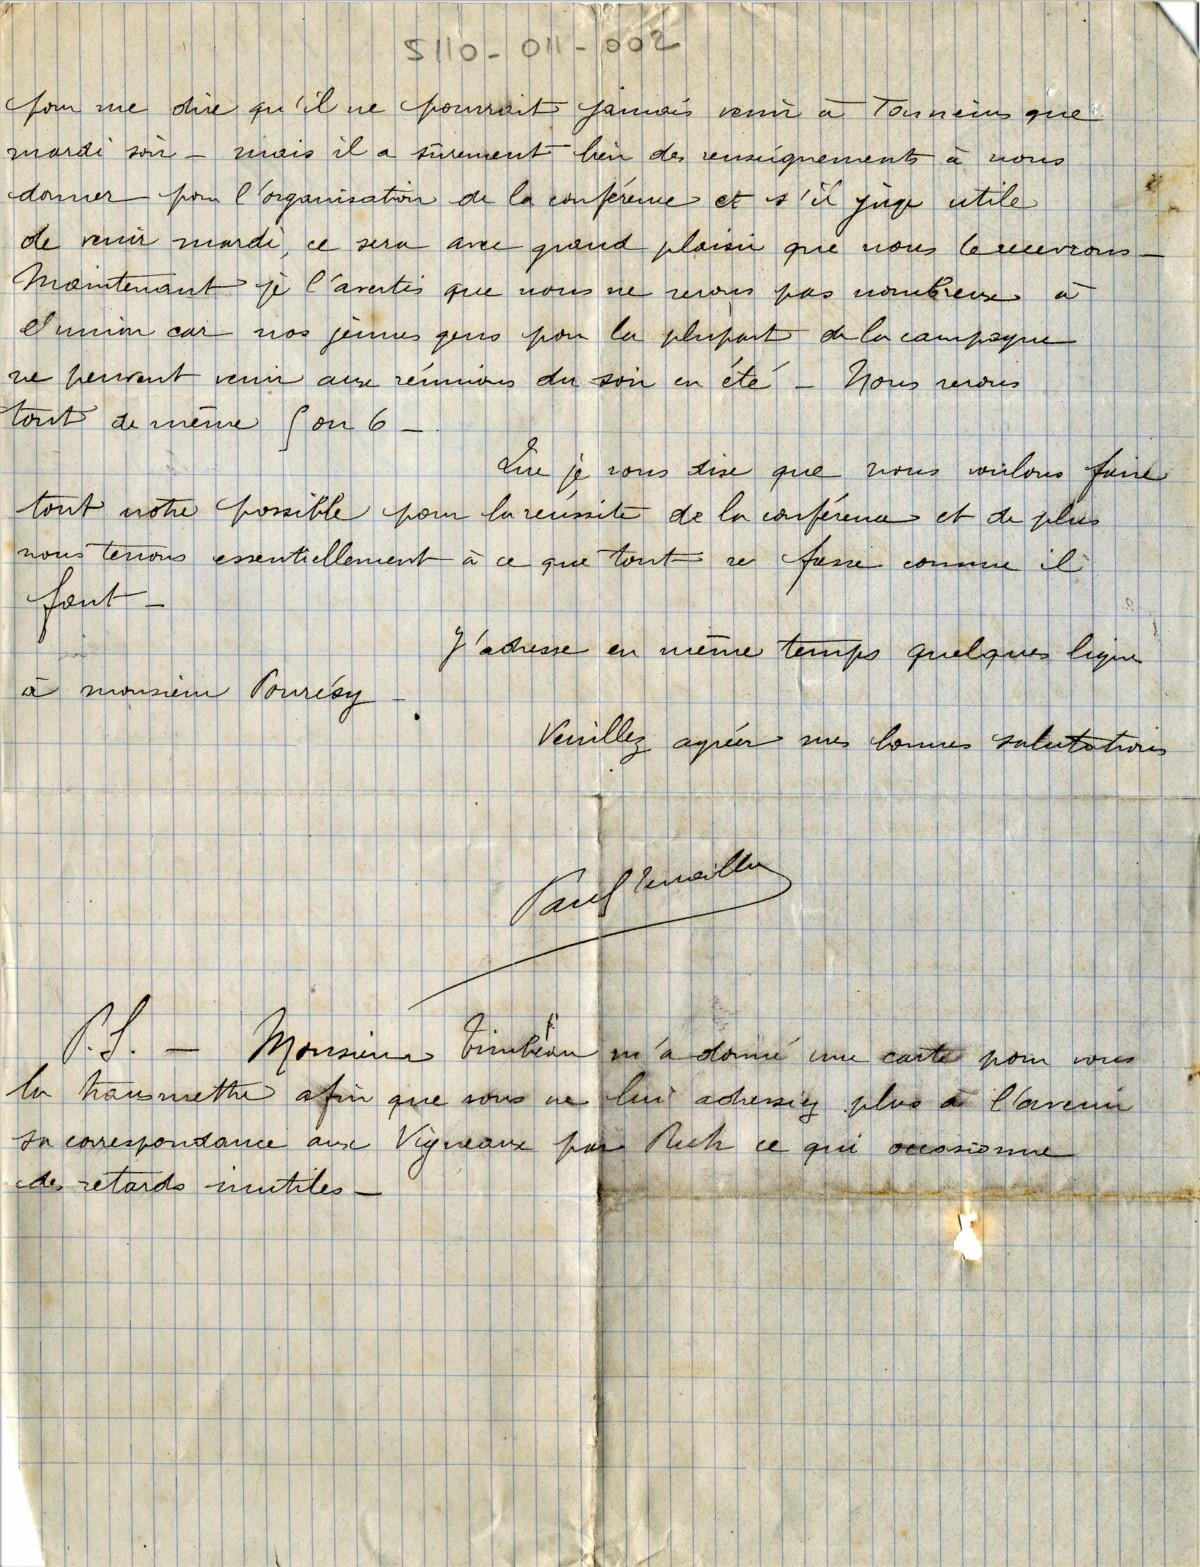 5110-011-002
pour me dire qu'il ne pourrait jamais venir à Tonneins que
mardi soir - mais il a sûrement bien des renseignements à nous
donner pour l'organisation de la conférence et s'il juge utile
de venir mardi, ce sera avec grand plaisir que nous le recevrons -
Maintenant je l'avertis que nous ne serons pas nombreux à
l'union car nos jeunes gens pour la plupart de la campagne
ne peuvent venir aux réunions du soir en été - Nous serons
tout de même 5 ou 6 -
Que je vous dise que nous voulons faire
tout notre possible pour la réussite de la conférence et de plus
nous tenons essentiellement à ce que tout se fasse comme il
faut -
J'adresse en même temps quelques ligne
à monsieur Pourésy -
Veuillez agréer mes bonnes salutations
Paul
P.S. - Monsieur m'a donné une carte pour vous
la transmettre afin que vous ne lui adressiez plus à l'avenir
sa correspondance aux Vigneaux par ce qui occasionne
des retards inutiles -